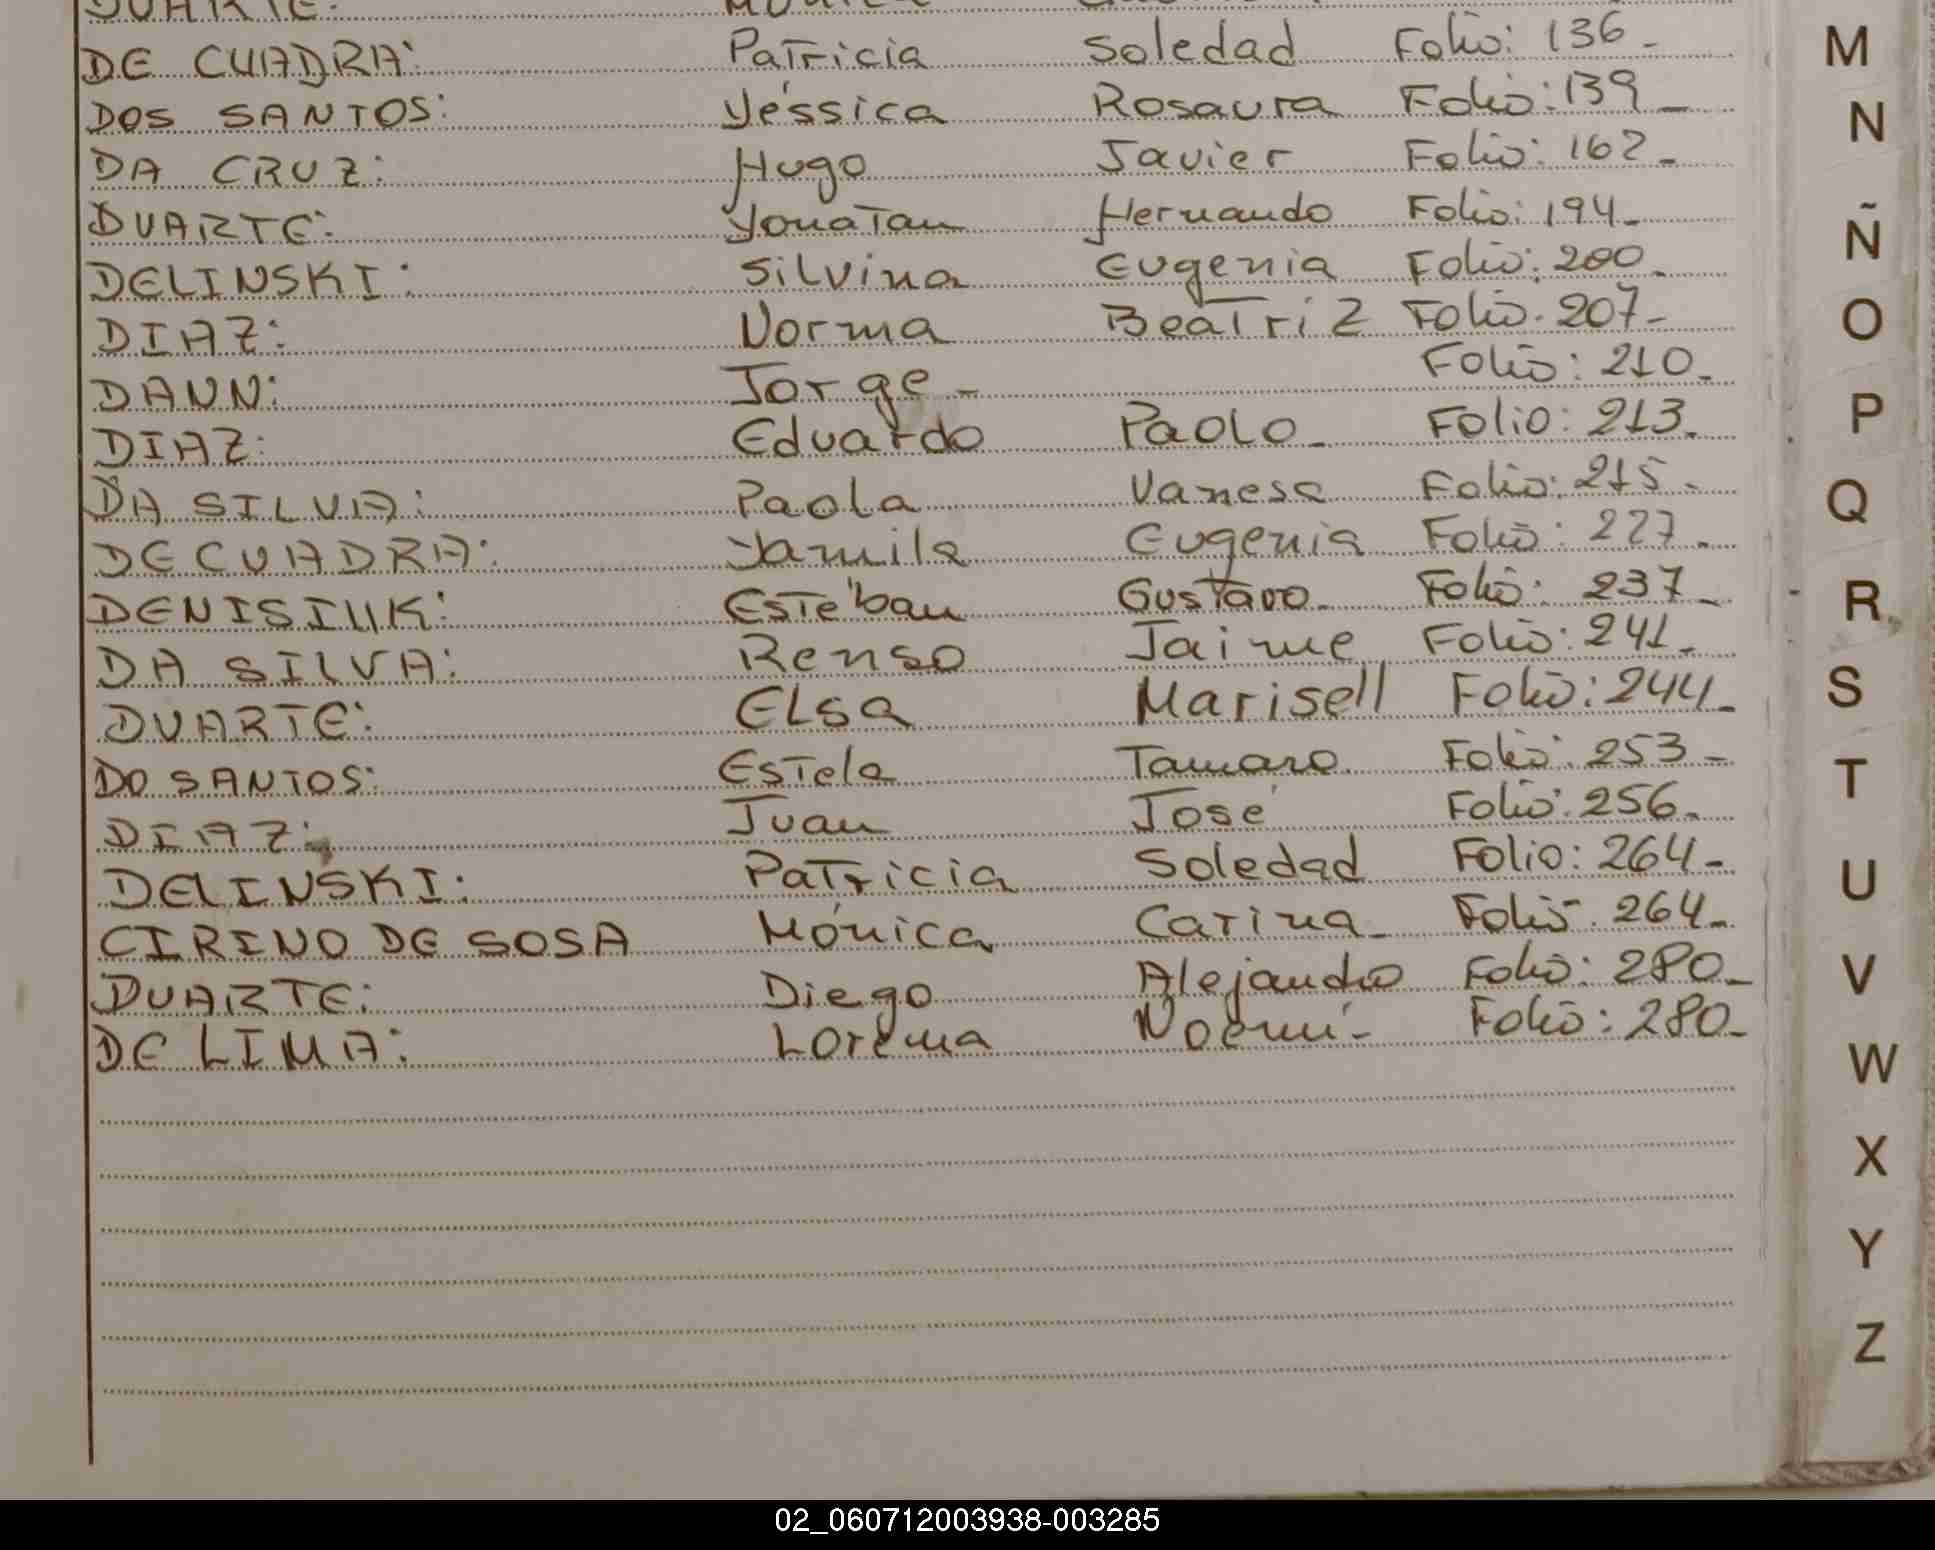 DUARTE: Mónica
DE CUADRA: Patricia Soledad Folio: 136-
DOS SANTOS: Yéssica Rosaura Folio: 139-
DA CRUZ: Hugo Javier Folio: 162-
DUARTE: Yonatan Hernando Folio: 194-
DELINSKI: Silvina Eugenia Folio: 200-
DIAZ: Norma Beatriz Folio. 207-
DANN: Jorge- Folio: 210-
DIAZ: Eduardo Paolo- Folio: 213-
DA SILVA: Paola Vanesa Folio: 215-
DE CUADRA: Yamila Eugenia Folio: 227-
DENISIUK: Estéban Gustavo- Folio: 237-
DA SILVA: Renso Jaime Folio: 241-
DUARTE: Elsa Marisell Folio: 244-
DO SANTOS: Estela Tamara Folio: 253-
DIAZ: Juan José Folio: 256-
DELINSKI: Patricia Soledad Folio: 264-
CIRINO DE SOSA Mónica Carina- Folio. 264-
DUARTE: Diego Alejandro Folio: 280-
DE LIMA: Lorena Noemí- Folio: 280-
M
N
Ñ
O
P
Q
R
S
T
U
V
W
X
Y
Z
02_060712003938-003285